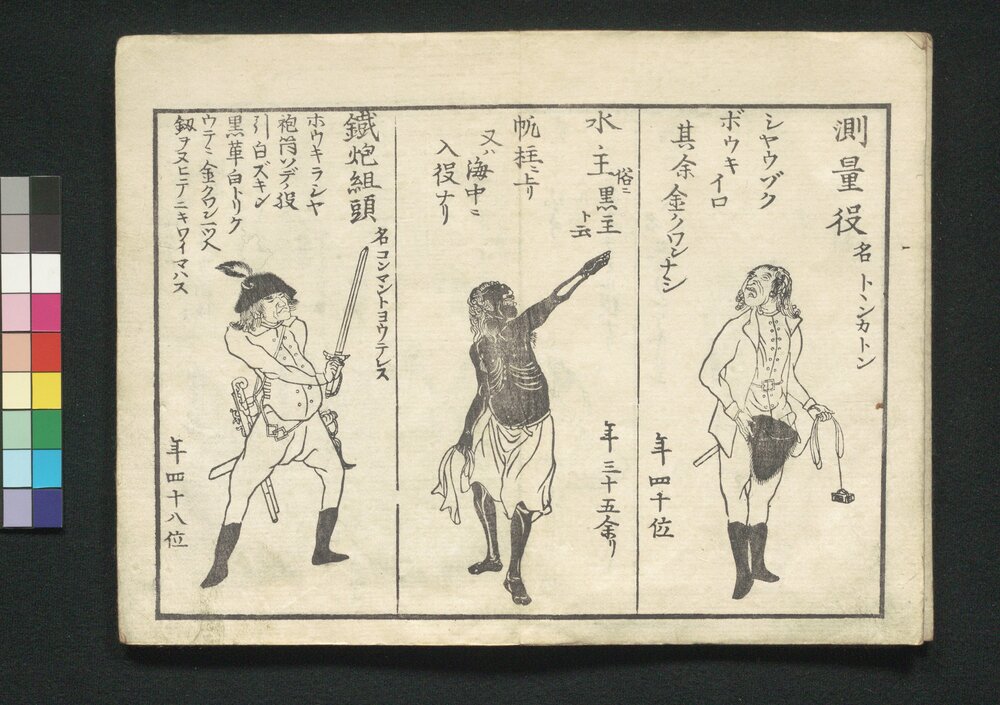 測量役
名 トンカトン
シヤウゾク
ボウキイロ
其余金クワンナシ
年四十位
水主
俗ニ黒主ト云
帆柱ニ上リ
又ハ海中ニ
入役ナリ
年三十五余リ
鐵炮組頭
名コンマントヨウテレス
ホウキラシヤ
袍筒ソデノ役
引白ズキン
黒革白トリケ
ウデニ金クワン二ツ入
釼ヲヌヒテニキワイマハス
年四十八位